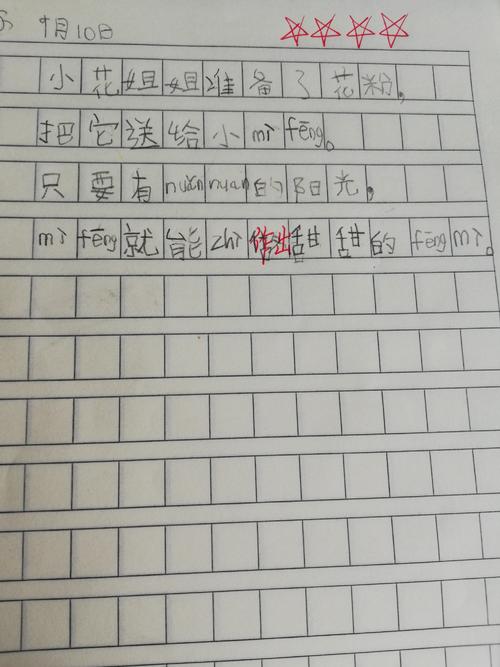 9月10日
小花姐姐准备了花粉。
把它送给小mì fēng。
只要有nuǎn nuan的阳光。
mì fēng就能zhì作出甜甜的fēng mì。